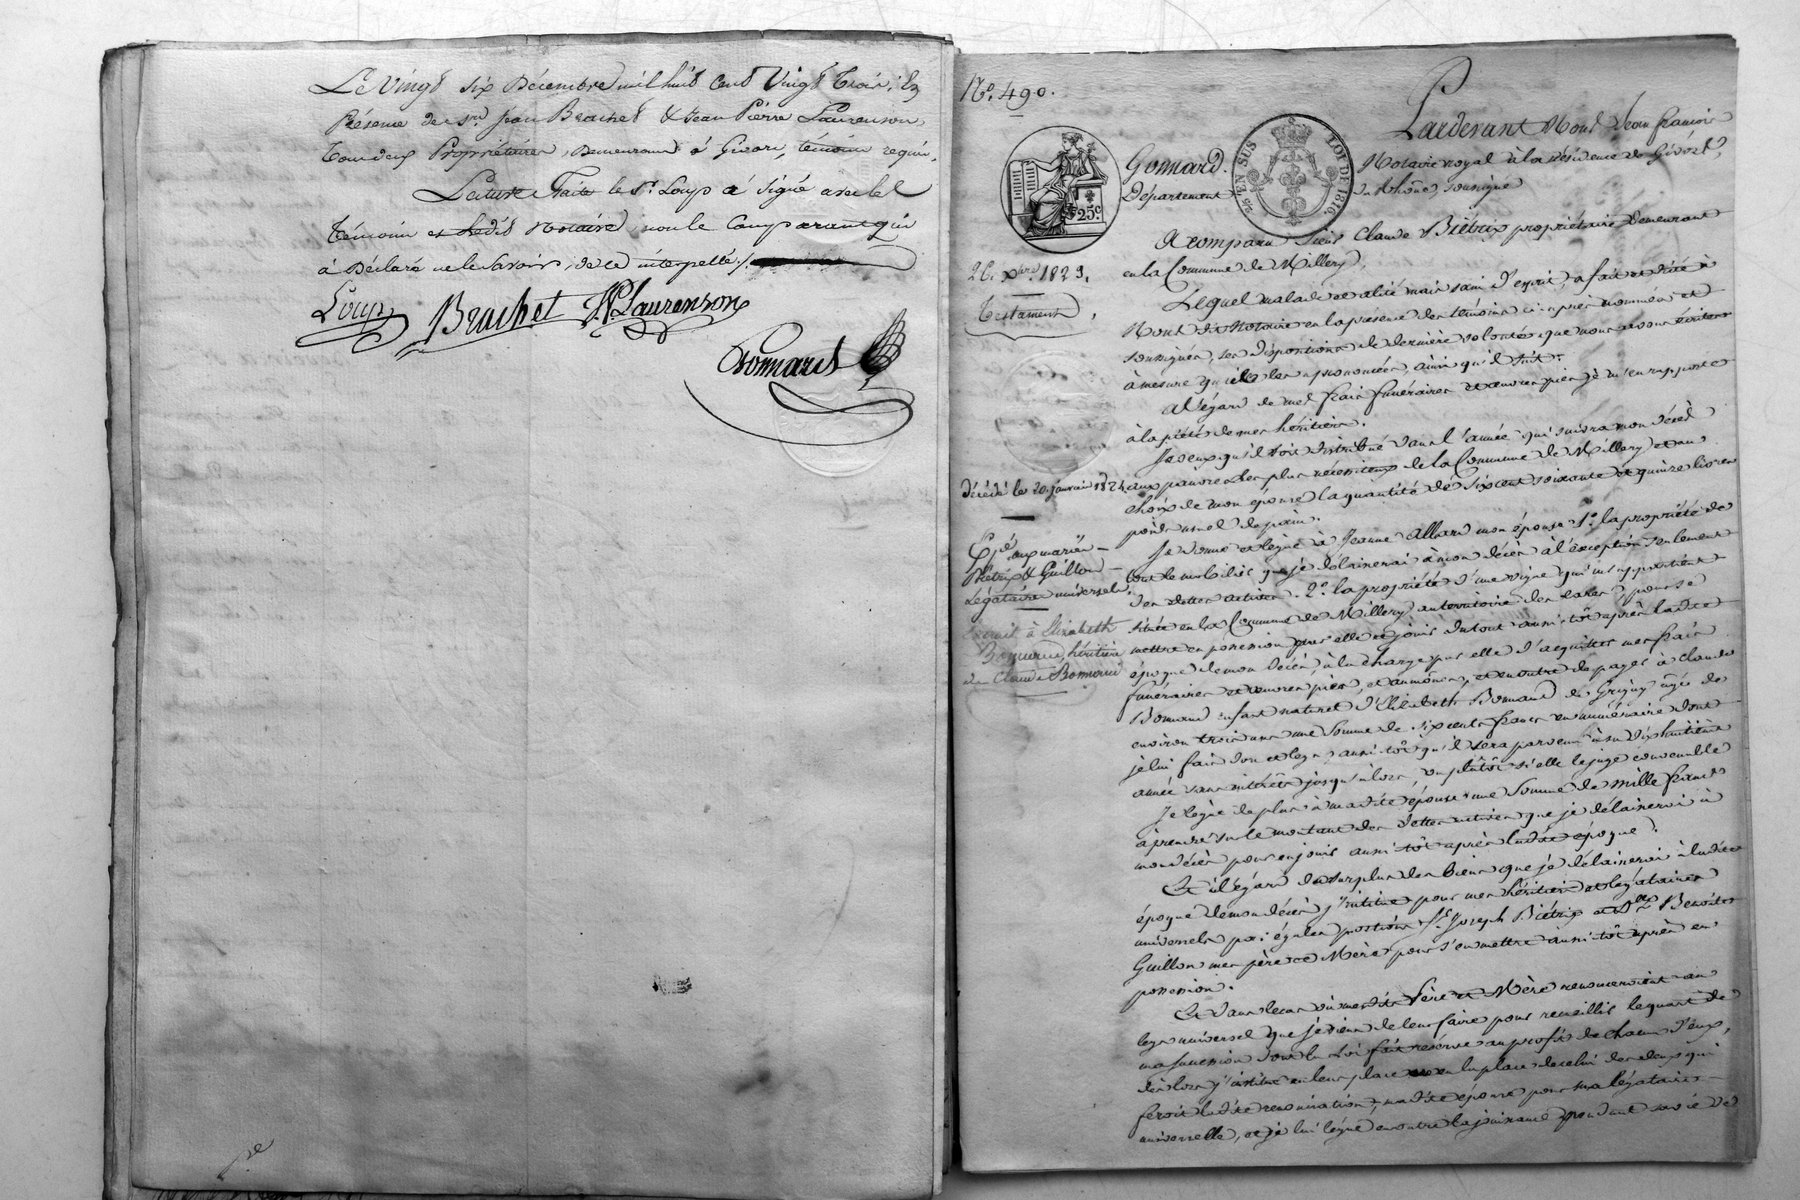 Le Vingt six Décembre mil huit Cent Vingt Trois; En
Présence de Srs Jean Brachet & Jean Pierre Laurenson,
Tous deux Propriétaires, Demeurant à Givors, témoins requis.
Lecture Faite le Sr Loup a Signé avec les
Témoins et Ledit Notaire, non le Comparant qui
à Déclaré ne le Savoir, de ce interpellé./.
Loup Brachet J.P. Laurenson
Gonnard
No. 490.
Pardevant Nous Jean françois
Gonnard. Notaire royal à la résidence de Givors,
Département du Rhône, soussigné
25 EN SUS LOI DE 1816
25c
A comparu Sieur Claude Biétrix propriétaire demeurant
en la Commune de Millery,
26. Xbre 1823.
Testament,
Lequel malade et alité mais sain d'esprit, a fait et dicté à
Nous dit Notaire en la présence des témoins ci-après nommés et
soussignés, ses dispositions de dernière volonté que nous avons écrites
à mesure qu'il les a prononcées, ainsi qu'il suit:
A l'égard de mes frais funéraires et œuvres pies je m'en rapporte
à la piété de mes héritiers.
Je veux qu'il soit distribué dans l'année qui suivra mon décès
décédé le 20. janvier 1824.
aux pauvres les plus nécessiteux de la Commune de Millery et au
choix de mon épouse la quantité de six cent soixante et quinze livres
poids usuel de pain.
Je donne et lègue à Jeanne Allard mon épouse 1o. la propriété de
tout le mobilier que je délaisserai à mon décès à l'exception seulement
des dettes actives. 2o. la propriété d'une vigne qui m'appartient
Expé aux mariés
Biétrix & Guillon
Légataires universels.
située en la Commune de Millery au territoire des , pour se
mettre en possession par elle et jouir du tout aussi-tôt après ladite
époque de mon décès, à la charge par elle d'acquitter mes frais
Extrait à Elizabeth
Bonnard, héritière
de Claude Bonnard
funéraires et œuvres pies, et aumônes, et en outre de payer à Claude
Bonnard enfant naturel d'Elizabeth Bonnard de Grigny âgé de
environ trois ans une Somme de six cents francs en numéraire dont
je lui fais don et legs, aussi-tôt qu'il sera parvenu à sa dix huitième
année sans intérêts jusqu'alors, ou plutôt si elle le juge convenable
Je lègue de plus à madite épouse une Somme de Mille francs
à prendre sur le montant des dettes actives que je délaisserai à
mon décès pour en jouir aussi-tôt après ladite époque.
Et à l'égard du surplus des biens que je délaisserai à ladite
époque de mon décès j'institue pour mes héritiers et légataires
universels par égales portions Sr Joseph Biétrix et De Benoîte
Guillon mes père et Mère pour s'en mettre aussi-tôt après en
possession.
Et dans le cas où mesdits Père et Mère renonceroient au
legs universel que je viens de leur faire pour recueillir le quart de
ma succession dont la Loi fait réserve au profit de chacun d'eux,
dès lors j'institue en leur place ou en la place de celui des deux qui
feroit ladite renonciation, madite épouse pour ma légataire
universelle, et je lui lègue en outre la jouissance pendant sa vie de